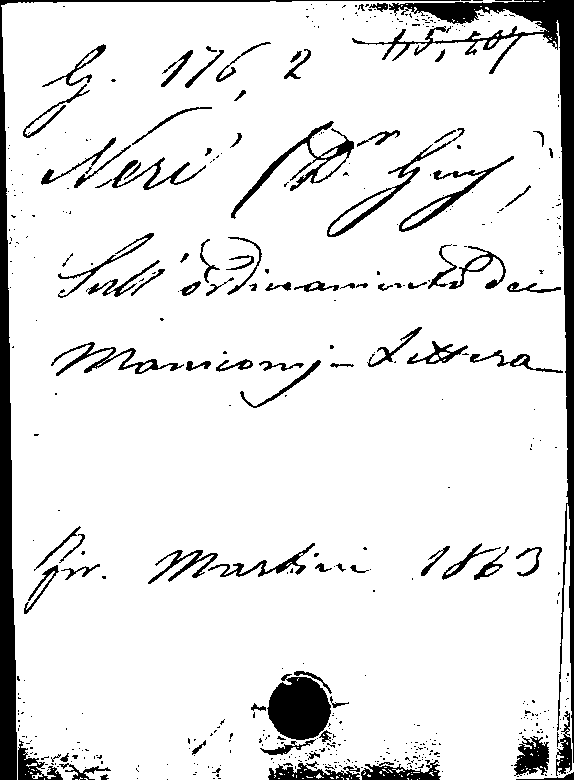 G. 176, 2 115, 207
Neri (Dr Gius)
Sull' ordinamento dei
Manicomj - Lettera
fir. Martini 1863